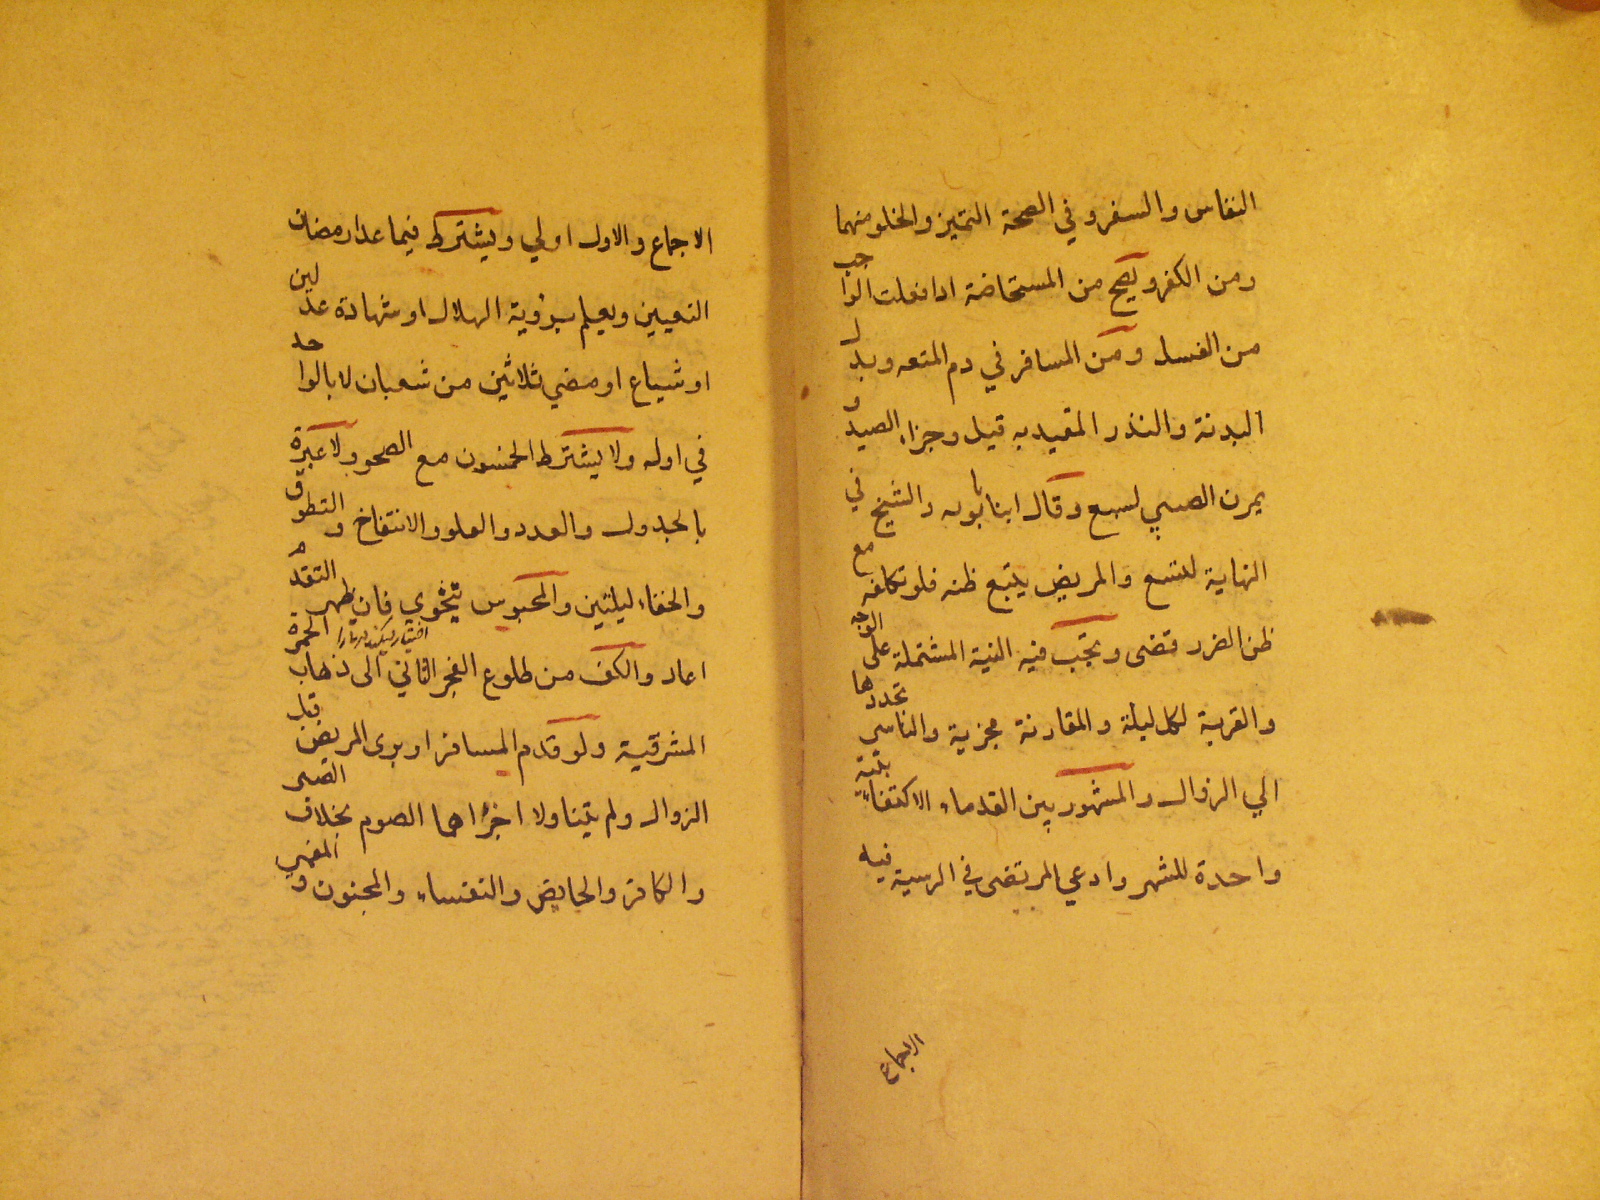 النفاس والسفر وفي الصحة التميز والخلو منهما
ومن الكفر ويصح من المستحاضة اذا فعلت الواجب
من الغسل ومن المسافر في دم المتعه وبدل
البدنة والنذر المقيد به قيل وجزاء الصيد و
يمرن الصبي لسبع وقال ابنا بابويه والشيخ في
النهاية لتسع والمريض يتبع ظنه فلو تكلفه مع
ظن الضرر قضى وتجب فيه النية المشتملة على الوجه
والقربة لكل ليلة والمقارنة مجزية والناسي تجددها
الي الزوال والمشهور بين القدماء الاكتفاء بنية
واحدة للشهر وادعي المرتضى في الرسية فيه
الاجماع
الاجماع والاول اولي ويشترط فيما عدا رمضان
التعيين ويعلم برؤية الهلال او شهادة عدلين
او شياع او مضي ثلاثين من شعبان لا بالواحد
في اوله ولا يشترط الخمسون مع الصحو ولا عبرة
بالجدول والعدد والعلو والانتفاخ والتطوق
والخفاء ليلتين والمحبوس يتوخي فان ظهر التقدم
اعاد والكف من طلوع الفجر الثاني الى ذهاب الحمرة
المشرقية ولو قدم المسافر او بري المريض قبل
الزوال ولم يتناولا اجزاهما الصوم بخلاف الصبي
والكافر والحايض والنفساء والمجنون والمغمي